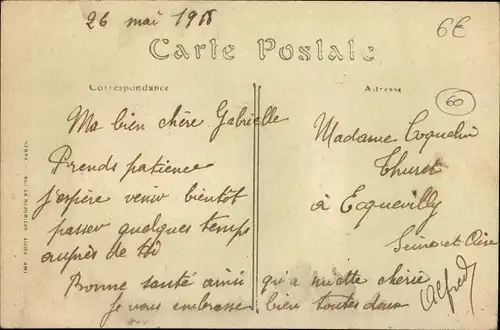 26 mai 1918
6€
Carte Postale
Correspondance
Adresse
60
Ma bien chère Gabrielle
Prends patience
j'espère venir bientôt
passer quelques temps
auprès de toi
Bonne santé ainsi qu'a miotte chérie
je vous embrasse bien toutes deux
Alfred
Madame Coquelin
Thuret
à Ecquevilly
Seine et Oise